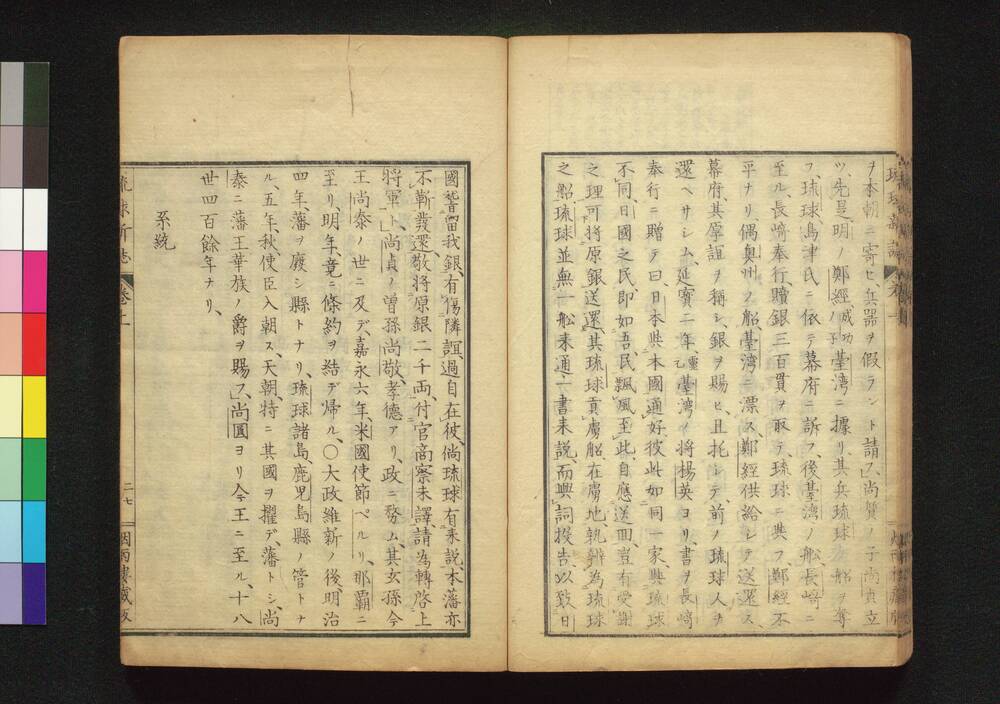 ヲ本朝ニ寄セ、兵器ヲ假ラント請フ、尚質ノ子尚貞立
ツ、先是明ノ鄭經、成功ノ子臺湾ニ據リ、其兵琉球ノ船ヲ奪
フ、琉球島津氏ニ依テ幕府ニ訴フ、後臺湾ノ船長﨑ニ
至ル、長﨑奉行贖銀三百貫ヲ取テ、琉球ニ與フ、鄭經不
平ナリ、偶奥州ノ船、臺湾ニ漂ス、鄭經供給シテ送還ス、
幕府、其厚誼ヲ稱シ、銀ヲ賜ヒ、且托シテ前ノ琉球人ヲ
還ヘサシム、延寳二年、臺湾ノ將揚英ヨリ、書ヲ長﨑
奉行ニ贈テ曰、日本與本國通好、彼此如同一家、與琉球
不同、日國之民、即如吾民、飄風至此、自應送回、豈有受謝
之理、可將原銀送還、其琉球貢虜船在虜地、執辨為琉球
之船、琉球並無一船来通、一書来説、而興詞投告、以致日
國誓留我銀、有傷隣誼、過自在彼、尚琉球有来説、本藩亦
不靳發還、敬將原銀二千両、付官商察未譯、請為轉啓上
將軍、尚貞ノ曽孫尚敬、孝德アリ、政ニ務ム、其玄孫今
王尚泰ノ世ニ及デ、嘉永六年、米國使節ペルリ、那覇ニ
至リ、明年、竟ニ條約ヲ結デ帰ル、〇大政維新ノ後、明治
四年、藩ヲ廢シ縣トナリ、琉球諸島、鹿児島縣ノ管トナ
ル、五年、秋使臣入朝ス、天朝特ニ其國ヲ擢デ、藩トシ、尚
泰ニ藩王華族ノ爵ヲ賜フ、尚圓ヨリ今王ニ至ル、十八
世四百餘年ナリ、
系統
琉球新誌
巻上
二七
烟雨樓蔵版